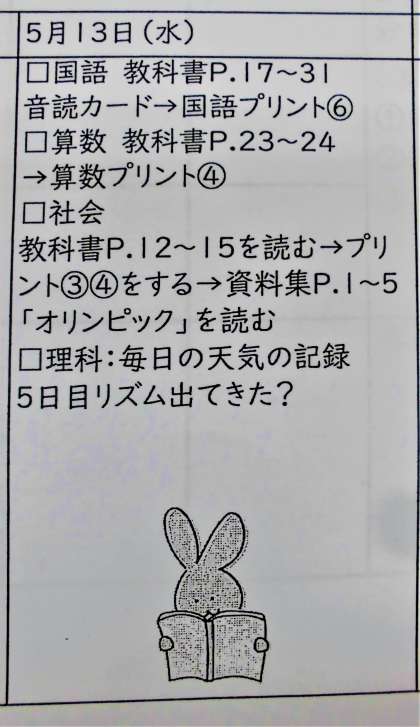 5月13日(水)
□国語 教科書P.17～31
音読カード→国語プリント⑥
□算数 教科書P.23～24
→算数プリント④
□社会
教科書P.12～15を読む→プリ
ント③④をする→資料集P.1～5
「オリンピック」を読む
□理科：毎日の天気の記録
5日目リズム出てきた？